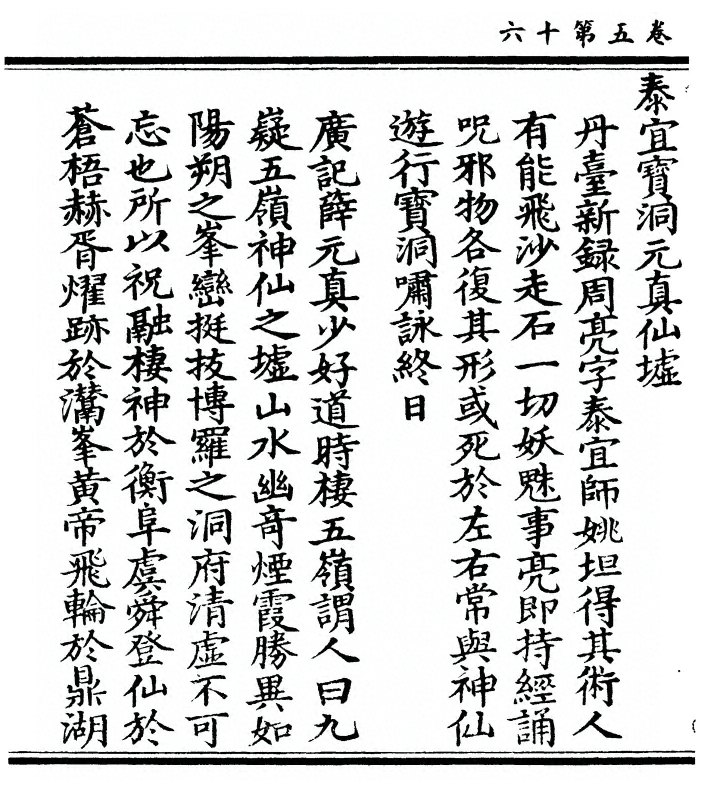 卷五第十六
泰宜寶洞元真仙墟
丹臺新録周亮字泰宜師姚坦得其術人
有能飛沙走石一切妖魅事亮即持經誦
呪邪物各復其形或死於左右常與神仙
遊行寶洞嘯詠終日
廣記薛元真少好道時棲五嶺謂人曰九
嶷五嶺神仙之墟山水幽竒煙霞勝異如
陽朔之峯巒挺拔博羅之洞府清虛不可
忘也所以祝融棲神於衡阜虞舜登仙於
蒼梧赫胥燿跡於灊峯黄帝飛輪於鼎湖